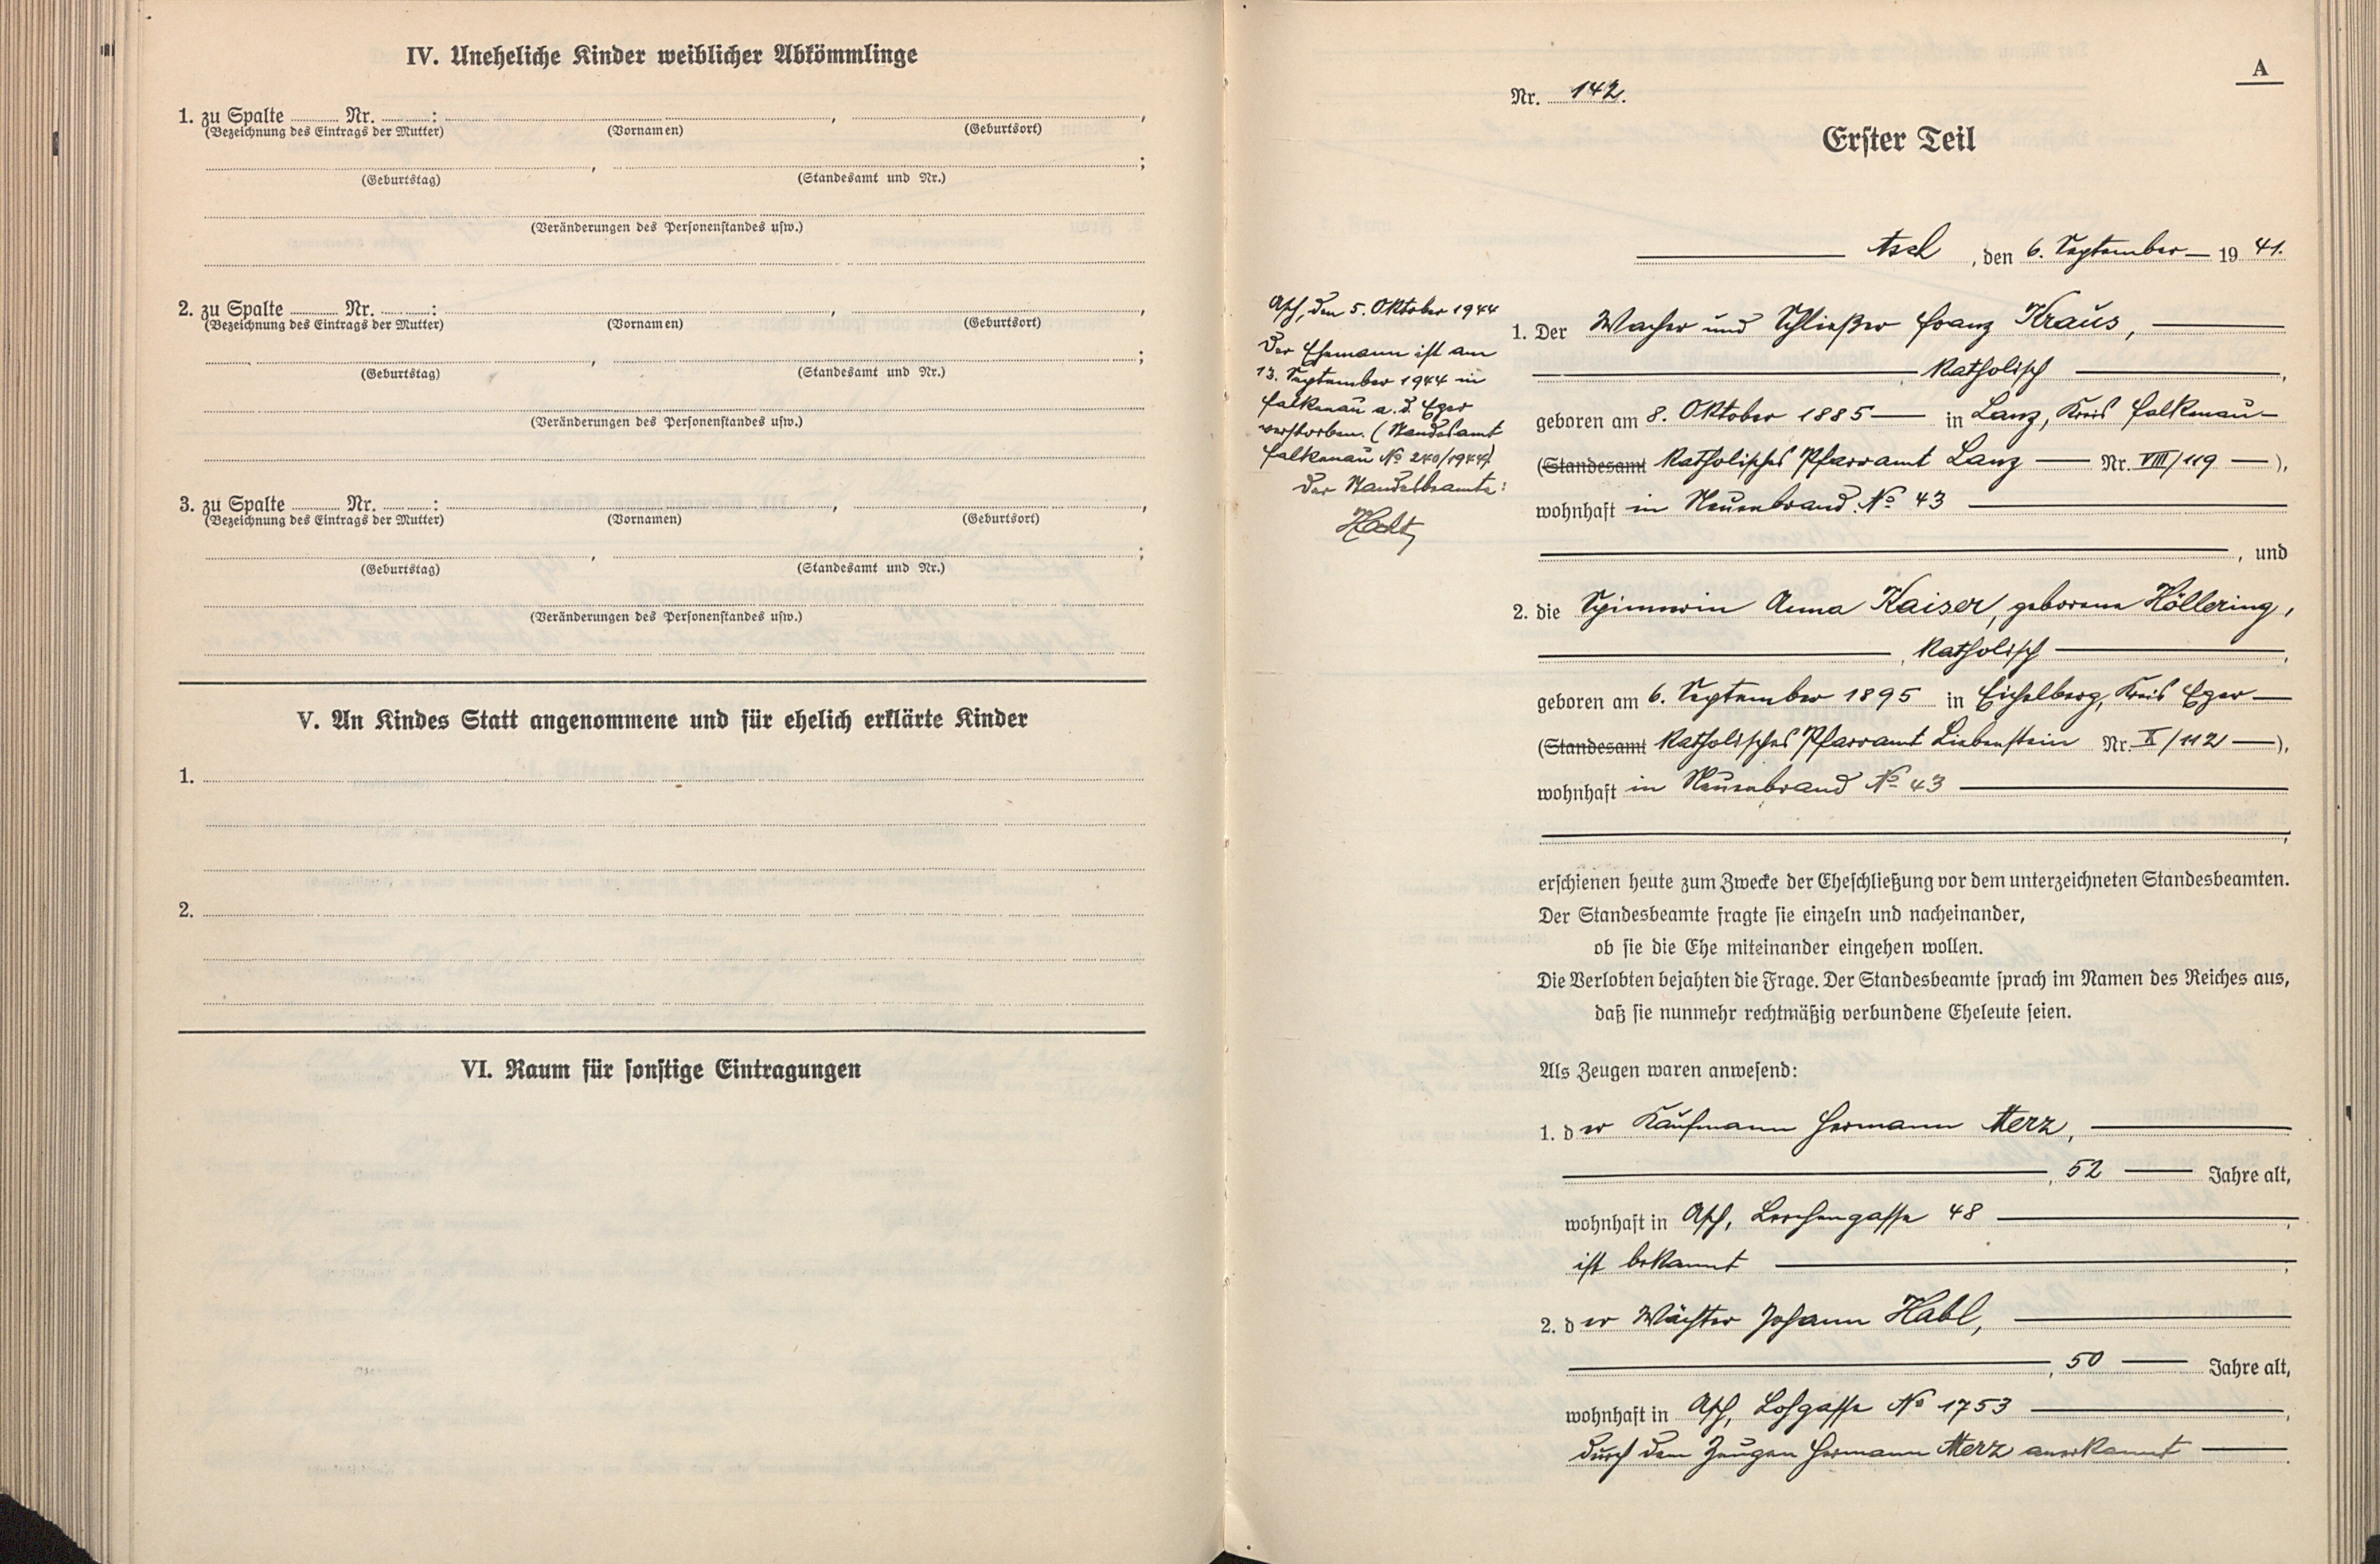 IV. Uneheliche Kinder weiblicher Abkömmlinge
1. zu Spalte ........ Nr. ........ : ........ , ........ ,
(Bezeichnung des Eintrags der Mutter) (Vornamen) (Geburtsort)
........ , ........ ;
(Geburtstag) (Standesamt und Nr.)
(Veränderungen des Personenstandes usw.)
2. zu Spalte ........ Nr. ........ : ........ , ........ ,
(Bezeichnung des Eintrags der Mutter) (Vornamen) (Geburtsort)
........ , ........ ;
(Geburtstag) (Standesamt und Nr.)
(Veränderungen des Personenstandes usw.)
3. zu Spalte ........ Nr. ........ : ........ , ........ ,
(Bezeichnung des Eintrags der Mutter) (Vornamen) (Geburtsort)
........ , ........ ;
(Geburtstag) (Standesamt und Nr.)
(Veränderungen des Personenstandes usw.)
V. An Kindes Statt angenommene und für ehelich erklärte Kinder
1.
2.
VI. Raum für sonstige Eintragungen
A
Nr. 142.
Erster Teil
Asch, den 6. September 19 41.
Asch, den 5. Oktober 1944
Der Ehemann ist am
13. September 1944 in
Falkenau a. d. Eger
verstorben. (Standesamt
Falkenau No 240/1944)
Der Standesbeamte:
1. Der Wacher und Schließer Franz Kraus,
Katholisch,
geboren am 8. Oktober 1885 in Lanz, Kreis Falkenau
(Standesamt Katholisches Pfarramt Lanz Nr. VIII/119),
wohnhaft in Neuenbrand No 43
, und
2. die Spinnerin Anna Kaiser, geborene Höllering,
, Katholisch,
geboren am 6. September 1895 in Eichelberg, Kreis Eger
(Standesamt Katholisches Pfarramt Liebenstein Nr. X/112),
wohnhaft in Neuenbrand No 43
,
erschienen heute zum Zwecke der Eheschließung vor dem unterzeichneten Standesbeamten.
Der Standesbeamte fragte sie einzeln und nacheinander,
ob sie die Ehe miteinander eingehen wollen.
Die Verlobten bejahten die Frage. Der Standesbeamte sprach im Namen des Reiches aus,
daß sie nunmehr rechtmäßig verbundene Eheleute seien.
Als Zeugen waren anwesend:
1. der Kaufmann Hermann Merz,
, 52 Jahre alt,
wohnhaft in Asch, Lerchengasse 48,
ist bekannt;
2. der Wächter Johann Habl,
, 50 Jahre alt,
wohnhaft in Asch, Lohgasse No 1753,
durch den Zeugen Hermann Merz anerkannt.